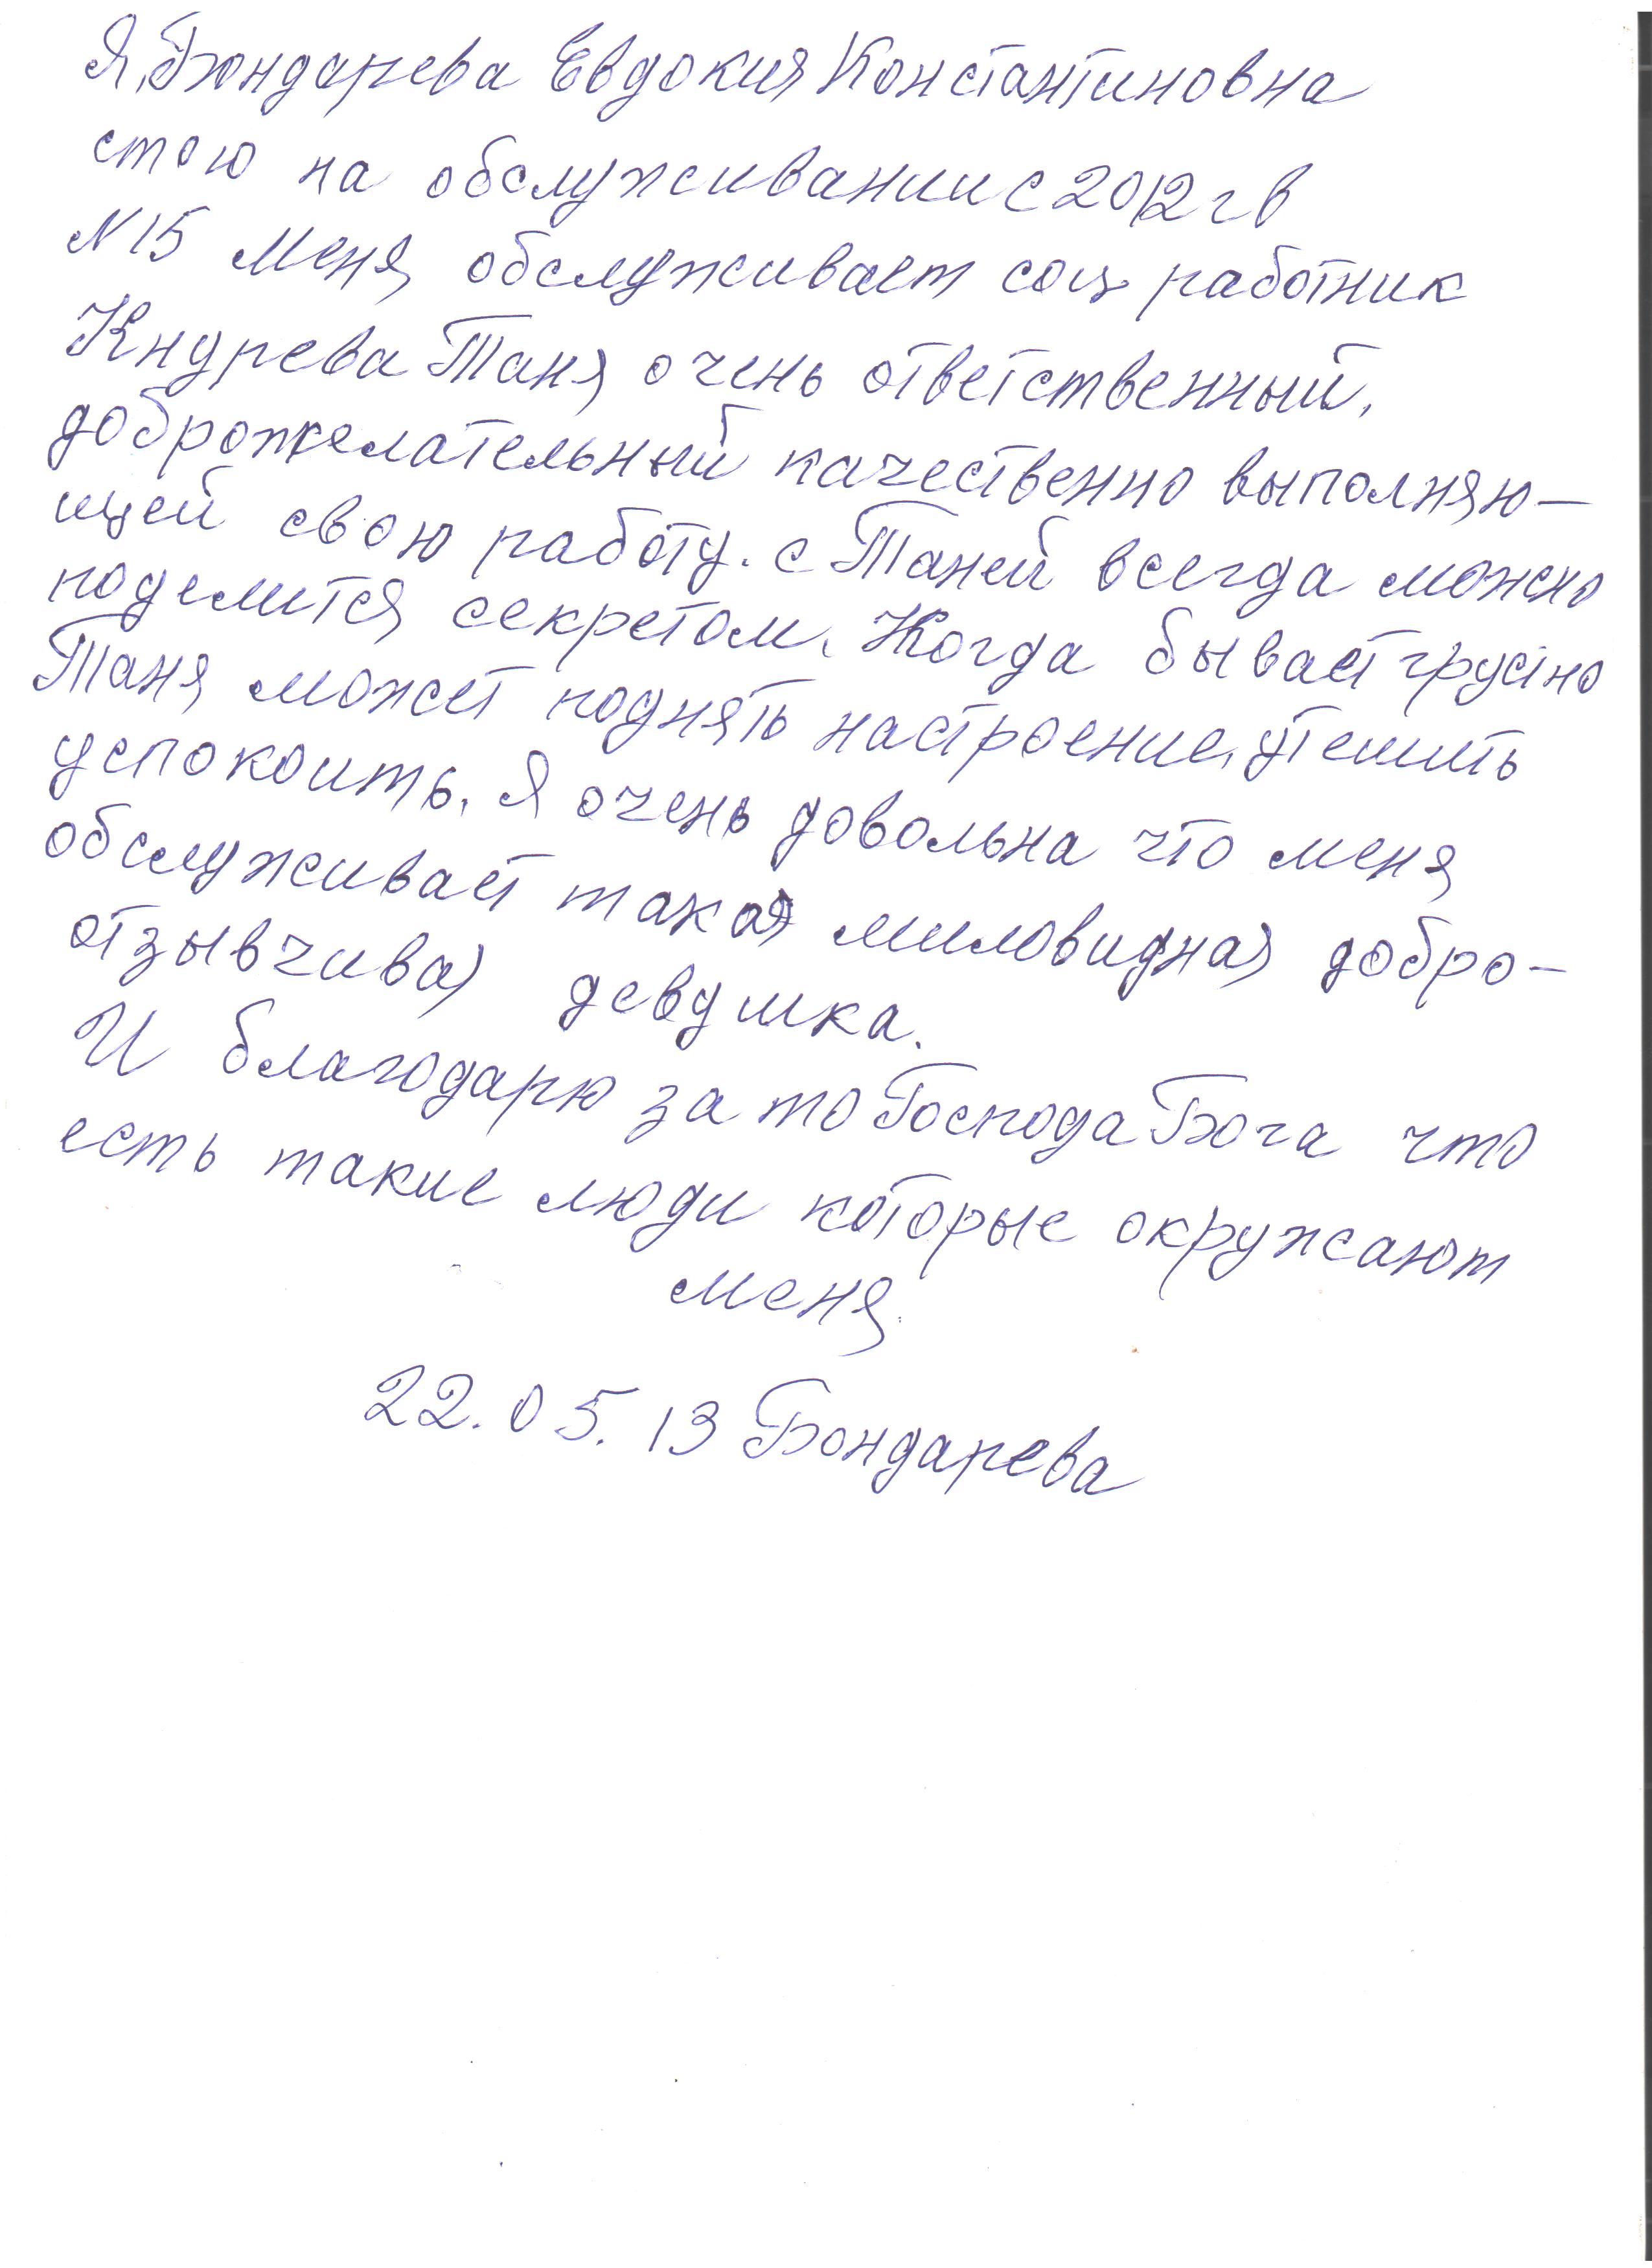 Я, Бондарева Евдокия Константиновна
стою на обслуживании с 2012 г в
N 15 меня обслуживает соц работник
Кнурева Таня очень ответственный,
доброжелательный качественно выполняю-
щей свою работу. с Таней всегда можно
поделится секретом. Когда бывает грустно
Таня может поднять настроение, утешить
успокоить. Я очень довольна что меня
обслуживает такая миловидная добро-
отзывчивая девушка.
И благодарю за то Господа Бога что
есть такие люди которые окружают
меня.
22.05.13 Бондарева